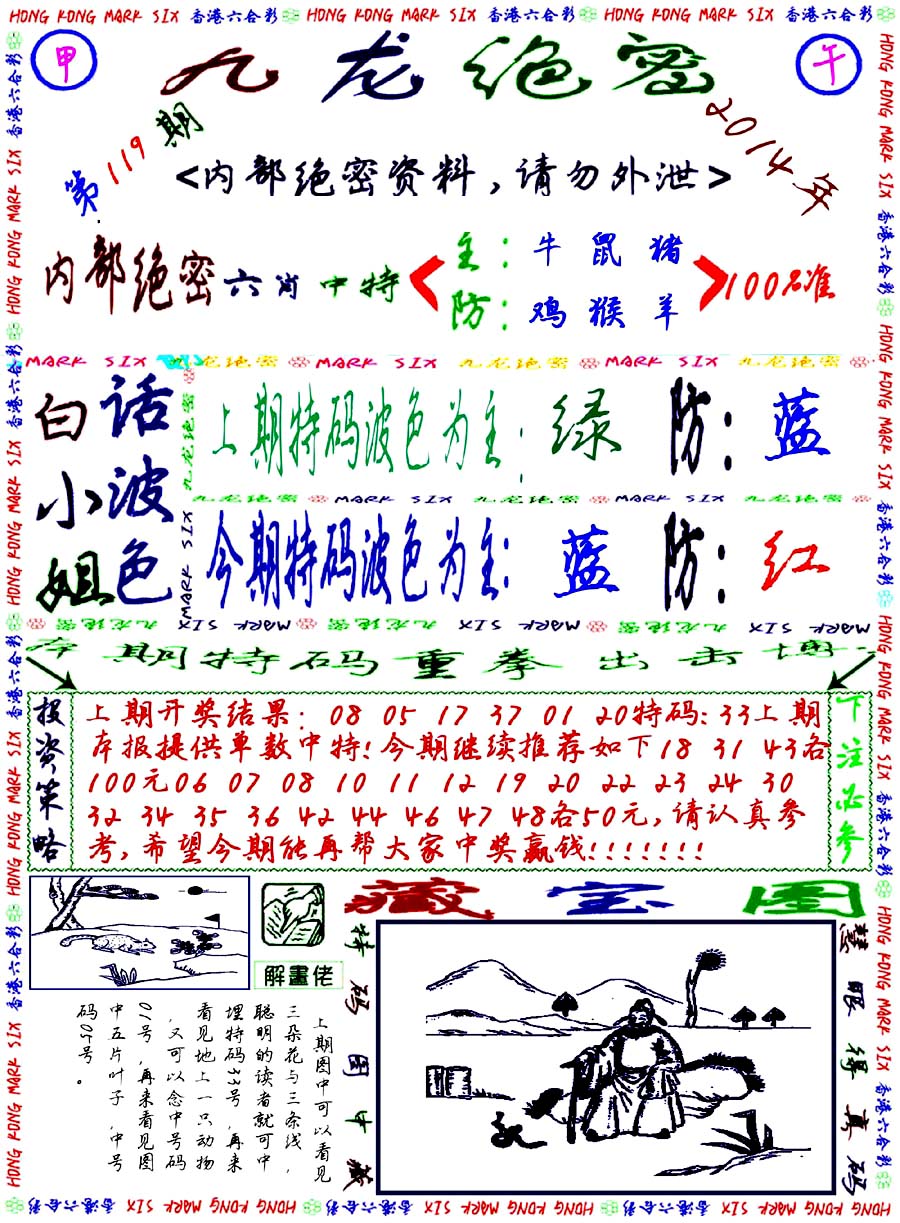 HONG KONG MARK SIX 香港六合彩 HONG KONG MARK SIX 香港六合彩 HONG KONG MARK SIX 香港六合彩
甲
九龙绝密
午
第119期
2014年
<内部绝密资料，请勿外泄>
内部绝密六肖中特
主：牛 鼠 猪
防：鸡 猴 羊
100%准
MARK SIX 九龙绝密 MARK SIX 九龙绝密 MARK SIX 九龙绝密
白话
小波
姐色
上期特码波色为主：绿 防：蓝
九龙绝密 MARK SIX 九龙绝密 MARK SIX 九龙绝密
今期特码波色为主：蓝 防：红
九龙绝密 MARK SIX 九龙绝密 MARK SIX 九龙绝密 MARK SIX
本期特码重拳出击博
投资策略
上期开奖结果：08 05 17 37 01 20特码:33上期
本报提供单数中特!今期继续推荐如下18 31 43各
100元06 07 08 10 11 12 19 20 22 23 24 30
32 34 35 36 42 44 46 47 48各50元,请认真参
考,希望今期能再帮大家中奖赢钱!!!!!!!
下注必参
藏宝图
解畫佬
上期图中可以看见
三朵花与三条线，
聪明的读者就可中
埋特码33号，再来
看见地上一只动物
，又可以念中号码
01号，再来看见图
中五片叶子，中号
码05号。
特码图中藏
慧眼得真码
HONG KONG MARK SIX 香港六合彩 HONG KONG MARK SIX 香港六合彩 HONG KONG MARK SIX 香港六合彩